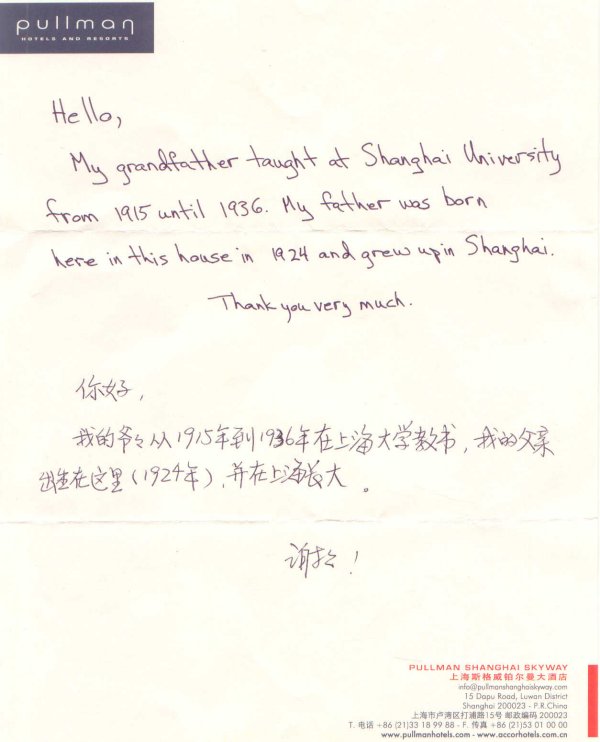 pullman
HOTELS AND RESORTS
Hello,
My grandfather taught at Shanghai University
from 1915 until 1936. My father was born
here in this house in 1924 and grew up in Shanghai.
Thank you very much.
你好,
我的爷々从1915年到1936年在上海大学教书,我的父亲
出生在这里(1924年),并在上海长大。
谢谢!
PULLMAN SHANGHAI SKYWAY
上海斯格威铂尔曼大酒店
info@pullmanshanghaiskyway.com
15 Dapu Road, Luwan District
Shanghai 200023 - P.R.China
上海市卢湾区打浦路15号 邮政编码 200023
T. 电话 +86 (21)33 18 99 88 - F. 传真 +86 (21)53 01 00 00
www.pullmanhotels.com - www.accorhotels.com.cn